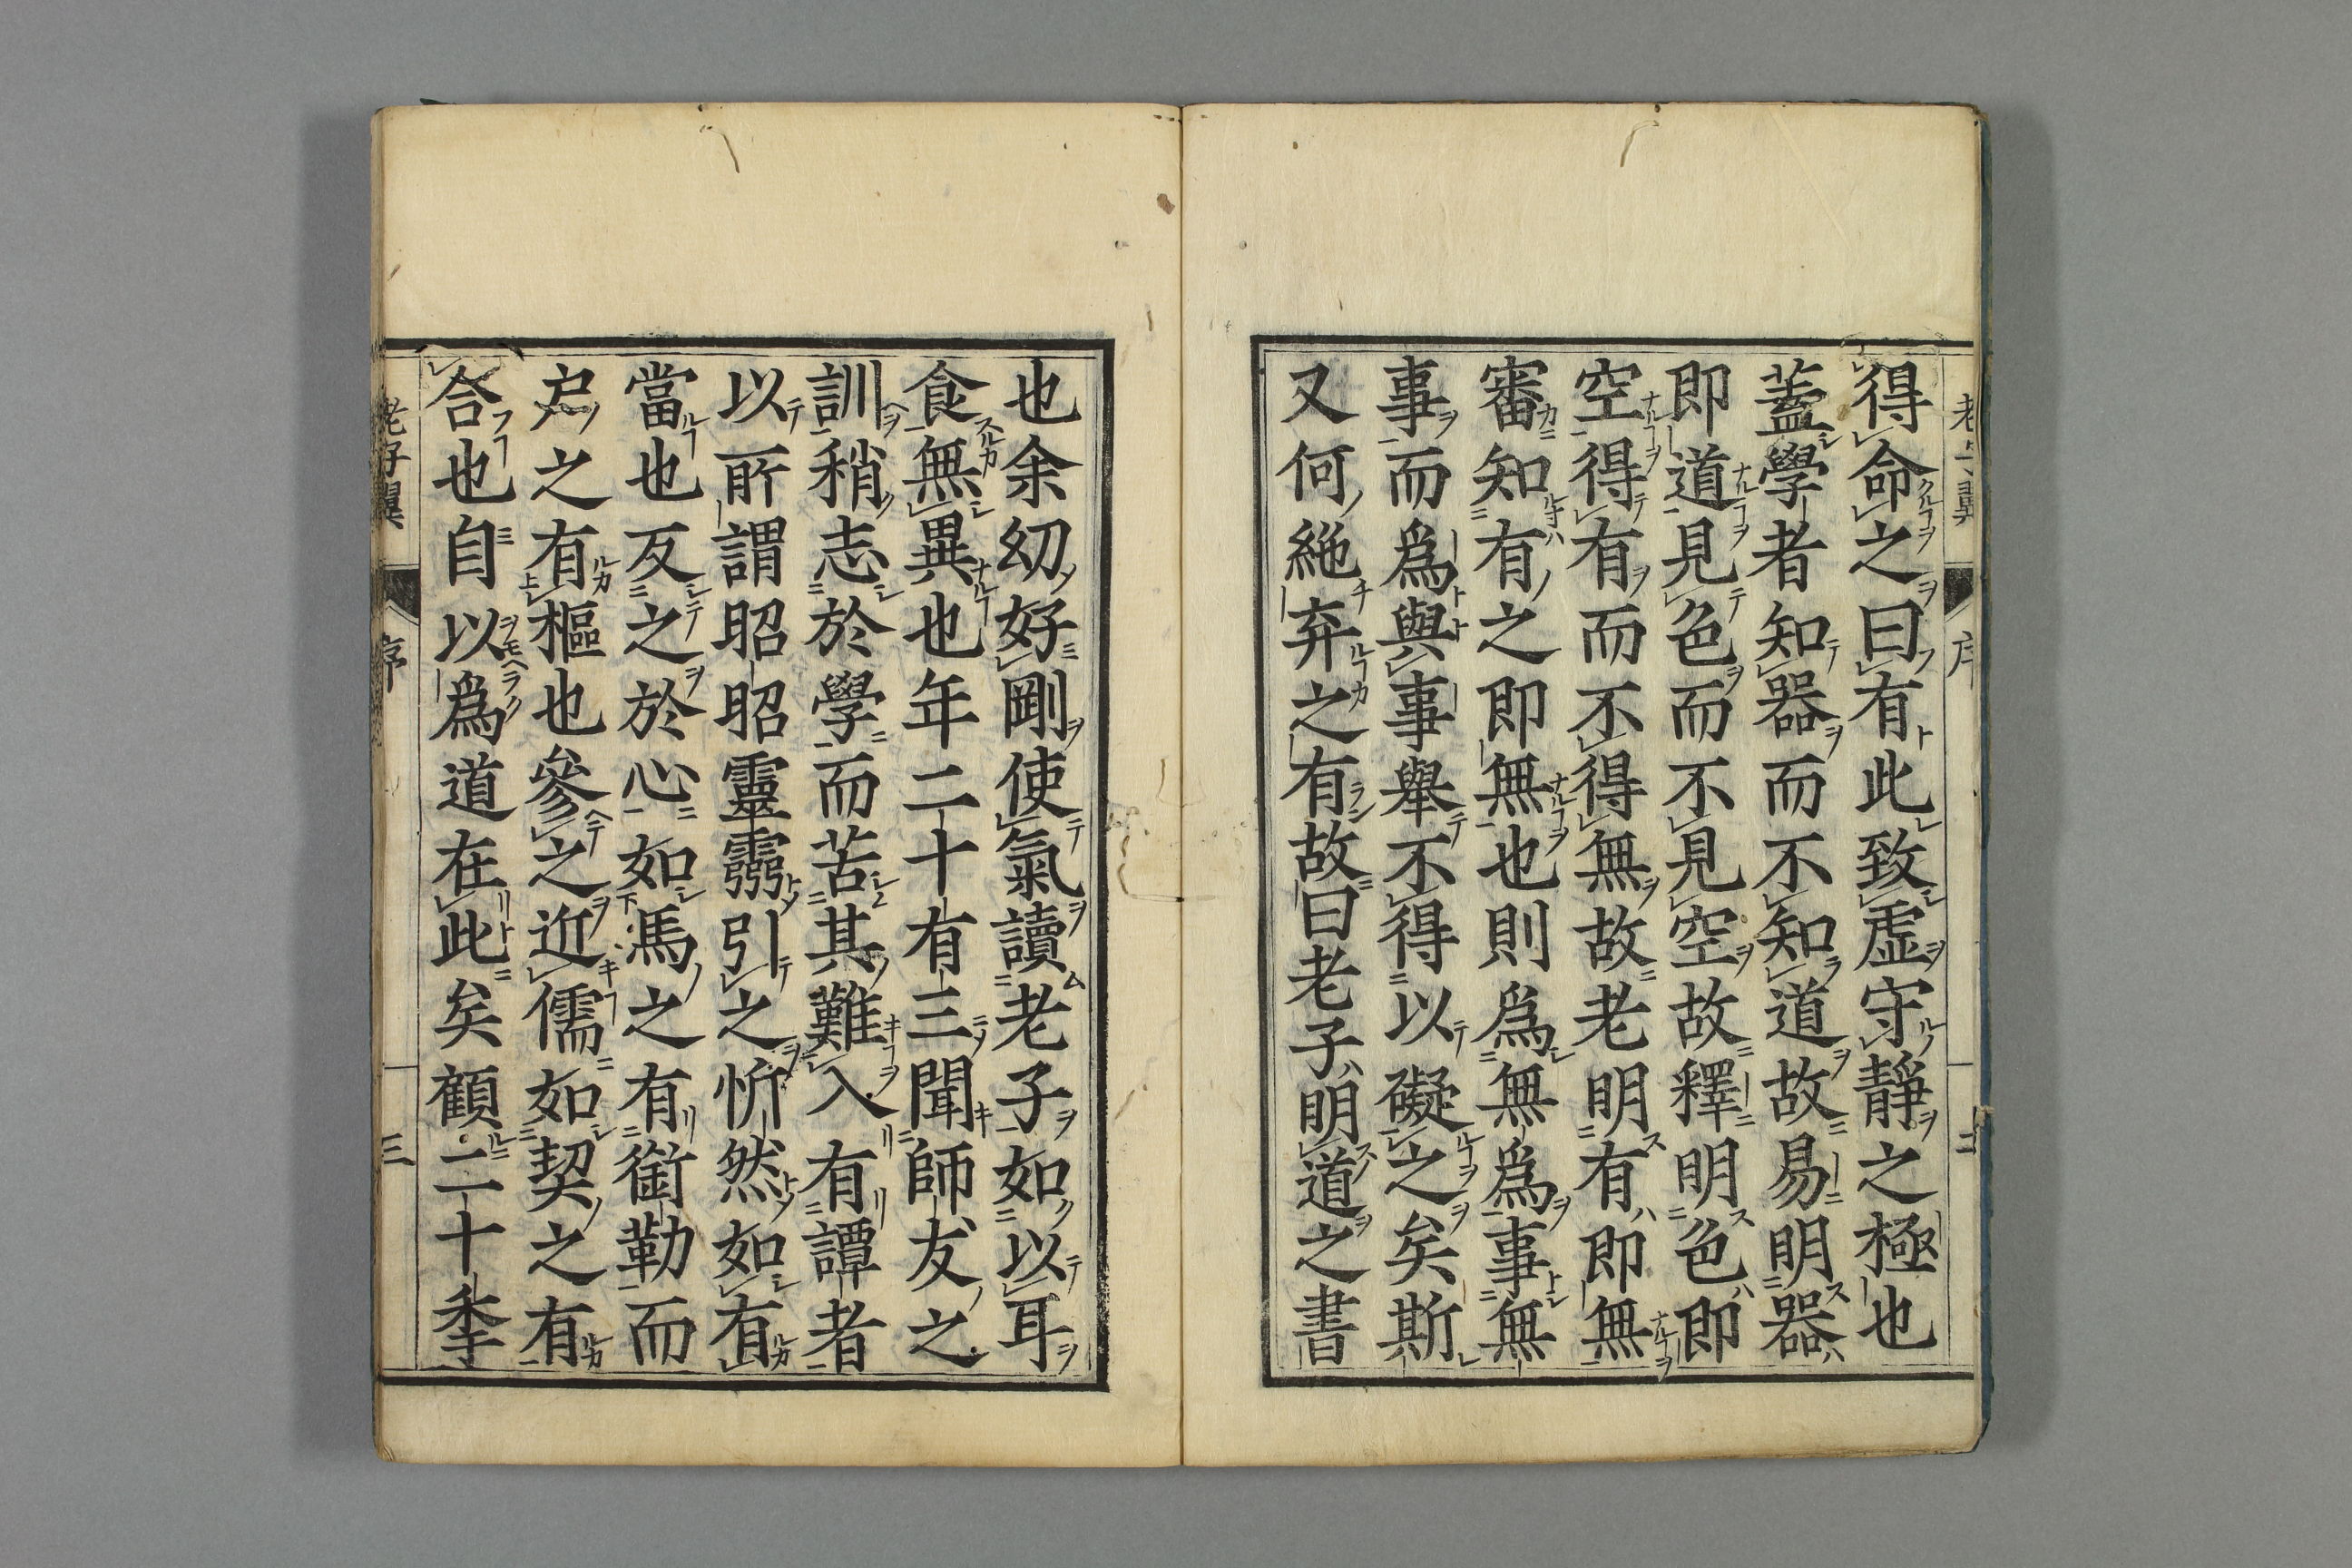 得命之曰有此致虛守靜之極也
蓋學者知器而不知道故易明器
即道見色而不見空故釋明色即
空得有而不得無故老明有即無
審知有之即無也則爲無爲事無
事而爲與事舉不得以礙之矣斯
又何絶弃之有故曰老子明道之書
也余幼好剛使氣讀老子如以耳
食無異也年二十有三聞師友之
訓稍志於學而苦其難入有譚者
以所謂昭昭靈靈引之忻然如有
當也反之於心如馬之有銜勒而
戶之有樞也參之近儒如契之有
合也自以爲道在此矣顧二十秊
老子翼
序
三